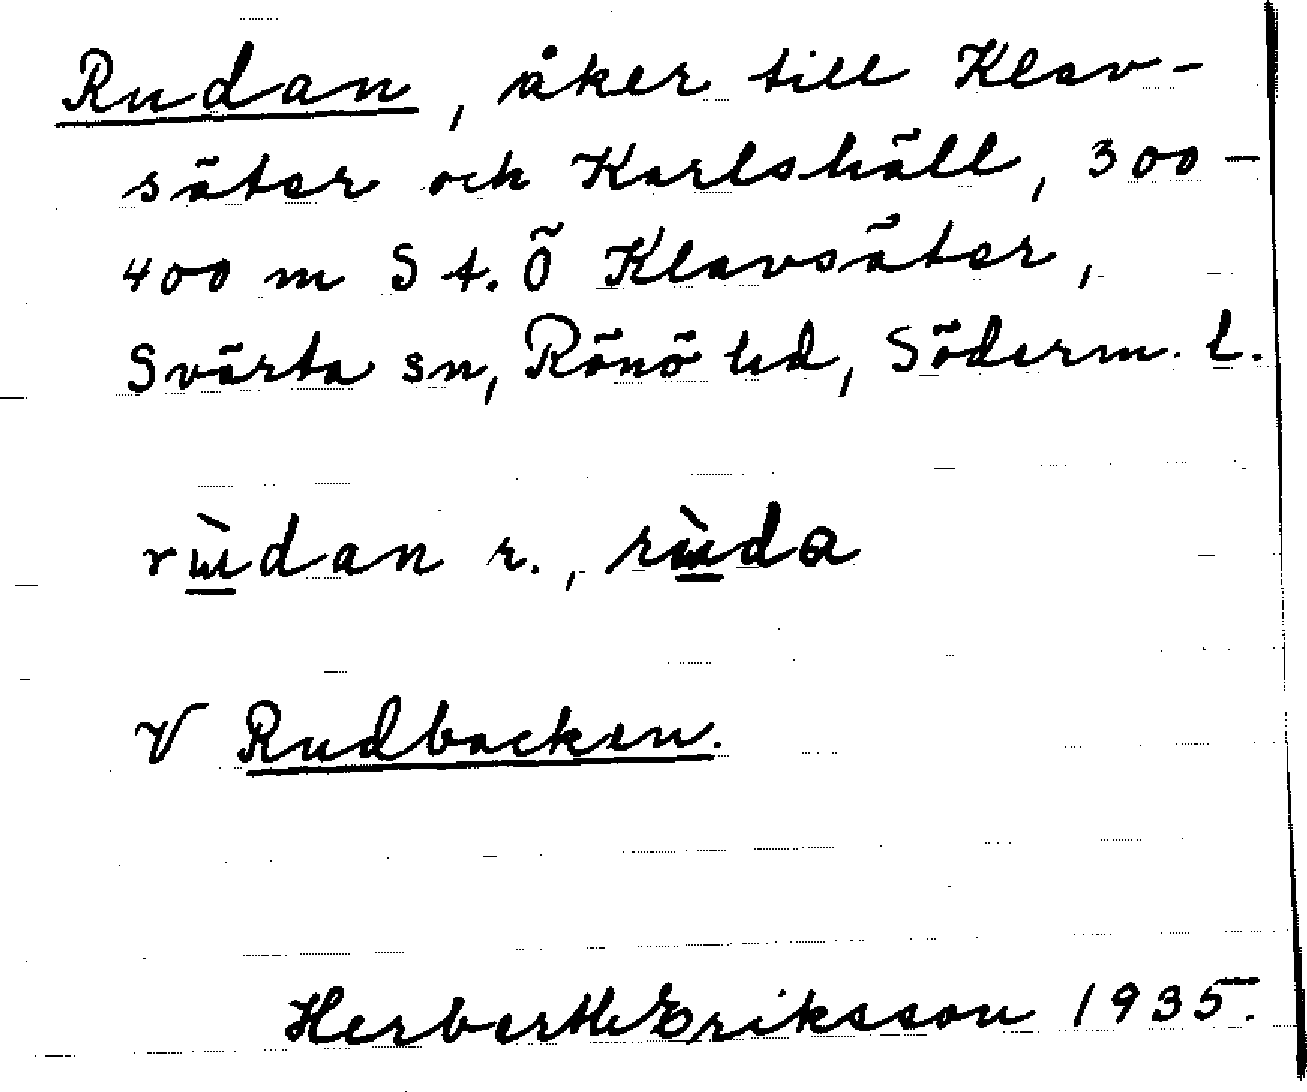 Rudan, åker till Klav-
säter och Karlshäll, 300-
400 m S t. Ö Klavsäter,
Svärta sn, Rönö hd, Söderm. l.
rɯ̀dan r., rɯ̀da
V Rudbacken.
Herbert Eriksson 1935.